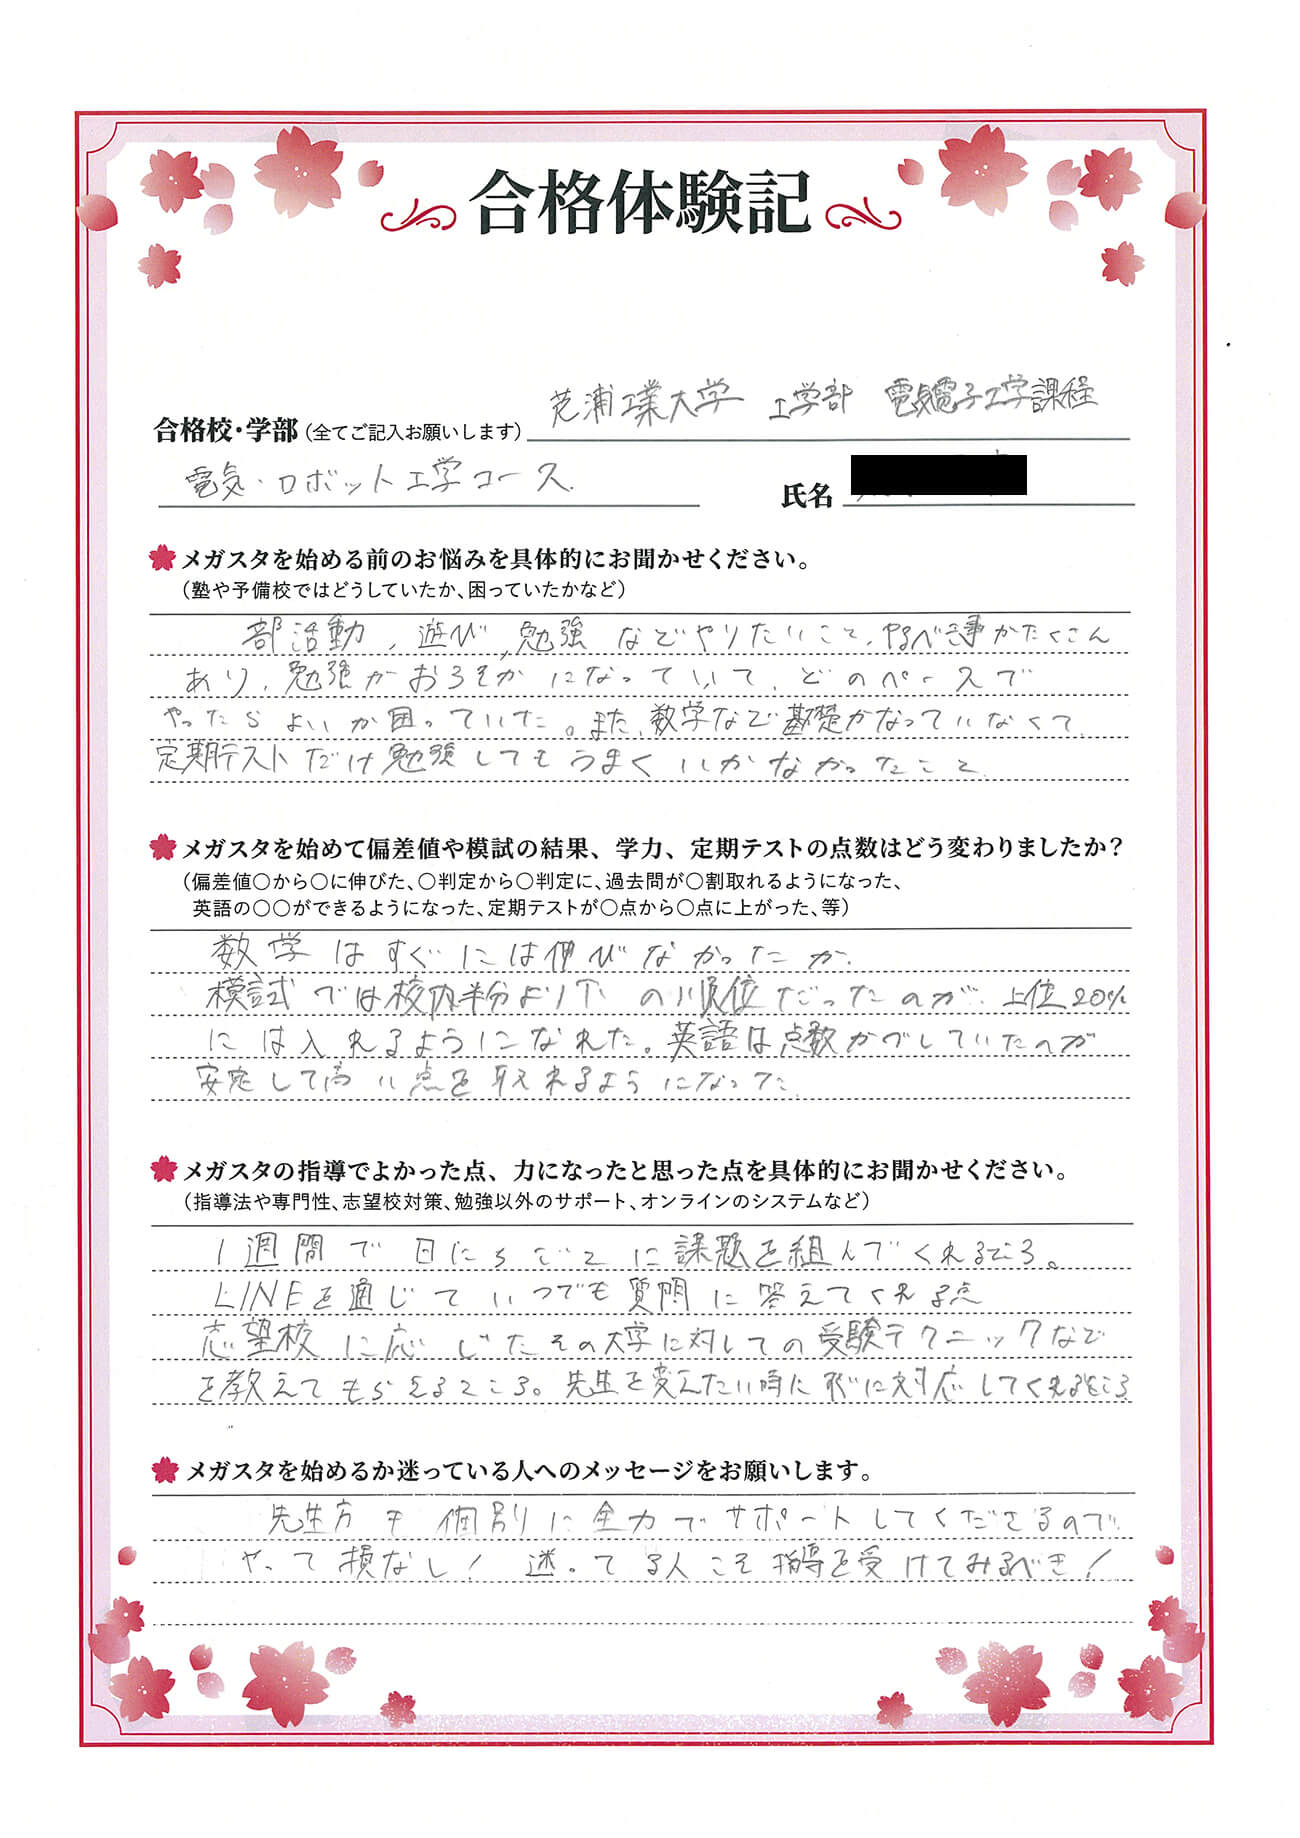 合格体験記
合格校・学部（全てご記入お願いします） 芝浦工業大学 工学部 電気電子工学課程
電気・ロボット工学コース 氏名
メガスタを始める前のお悩みを具体的にお聞かせください。
（塾や予備校ではどうしていたか、困っていたかなど）
部活動，遊び，勉強などやりたいこと，やるべき事がたくさん
あり，勉強がおろそかになっていて，どのペースで
やったらよいか困っていた。また，数学など基礎がなっていなくて，
定期テストだけ勉強してもうまくいかなかったこと
メガスタを始めて偏差値や模試の結果、学力、定期テストの点数はどう変わりましたか？
（偏差値〇から〇に伸びた、〇判定から〇判定に、過去問が〇割取れるようになった、
英語の〇〇ができるようになった、定期テストが〇点から〇点に上がった、等）
数学はすぐには伸びなかったが，
模試では校内半分より下の順位だったのが，上位20%
には入れるようになれた。英語は点数がブレていたのが
安定して高い点を取れるようになった
メガスタの指導でよかった点、力になったと思った点を具体的にお聞かせください。
（指導法や専門性、志望校対策、勉強以外のサポート、オンラインのシステムなど）
1週間で日にちごとに課題を組んでくれるところ。
LINEを通じていつでも質問に答えてくれる点
志望校に応じたその大学に対しての受験テクニックなど
を教えてもらえるところ。先生を変えたい時にすぐに対応してくれるところ
メガスタを始めるか迷っている人へのメッセージをお願いします。
先生方も個別に全力でサポートしてくださるので，
やって損なし！ 迷ってる人こそ指導を受けてみるべき！